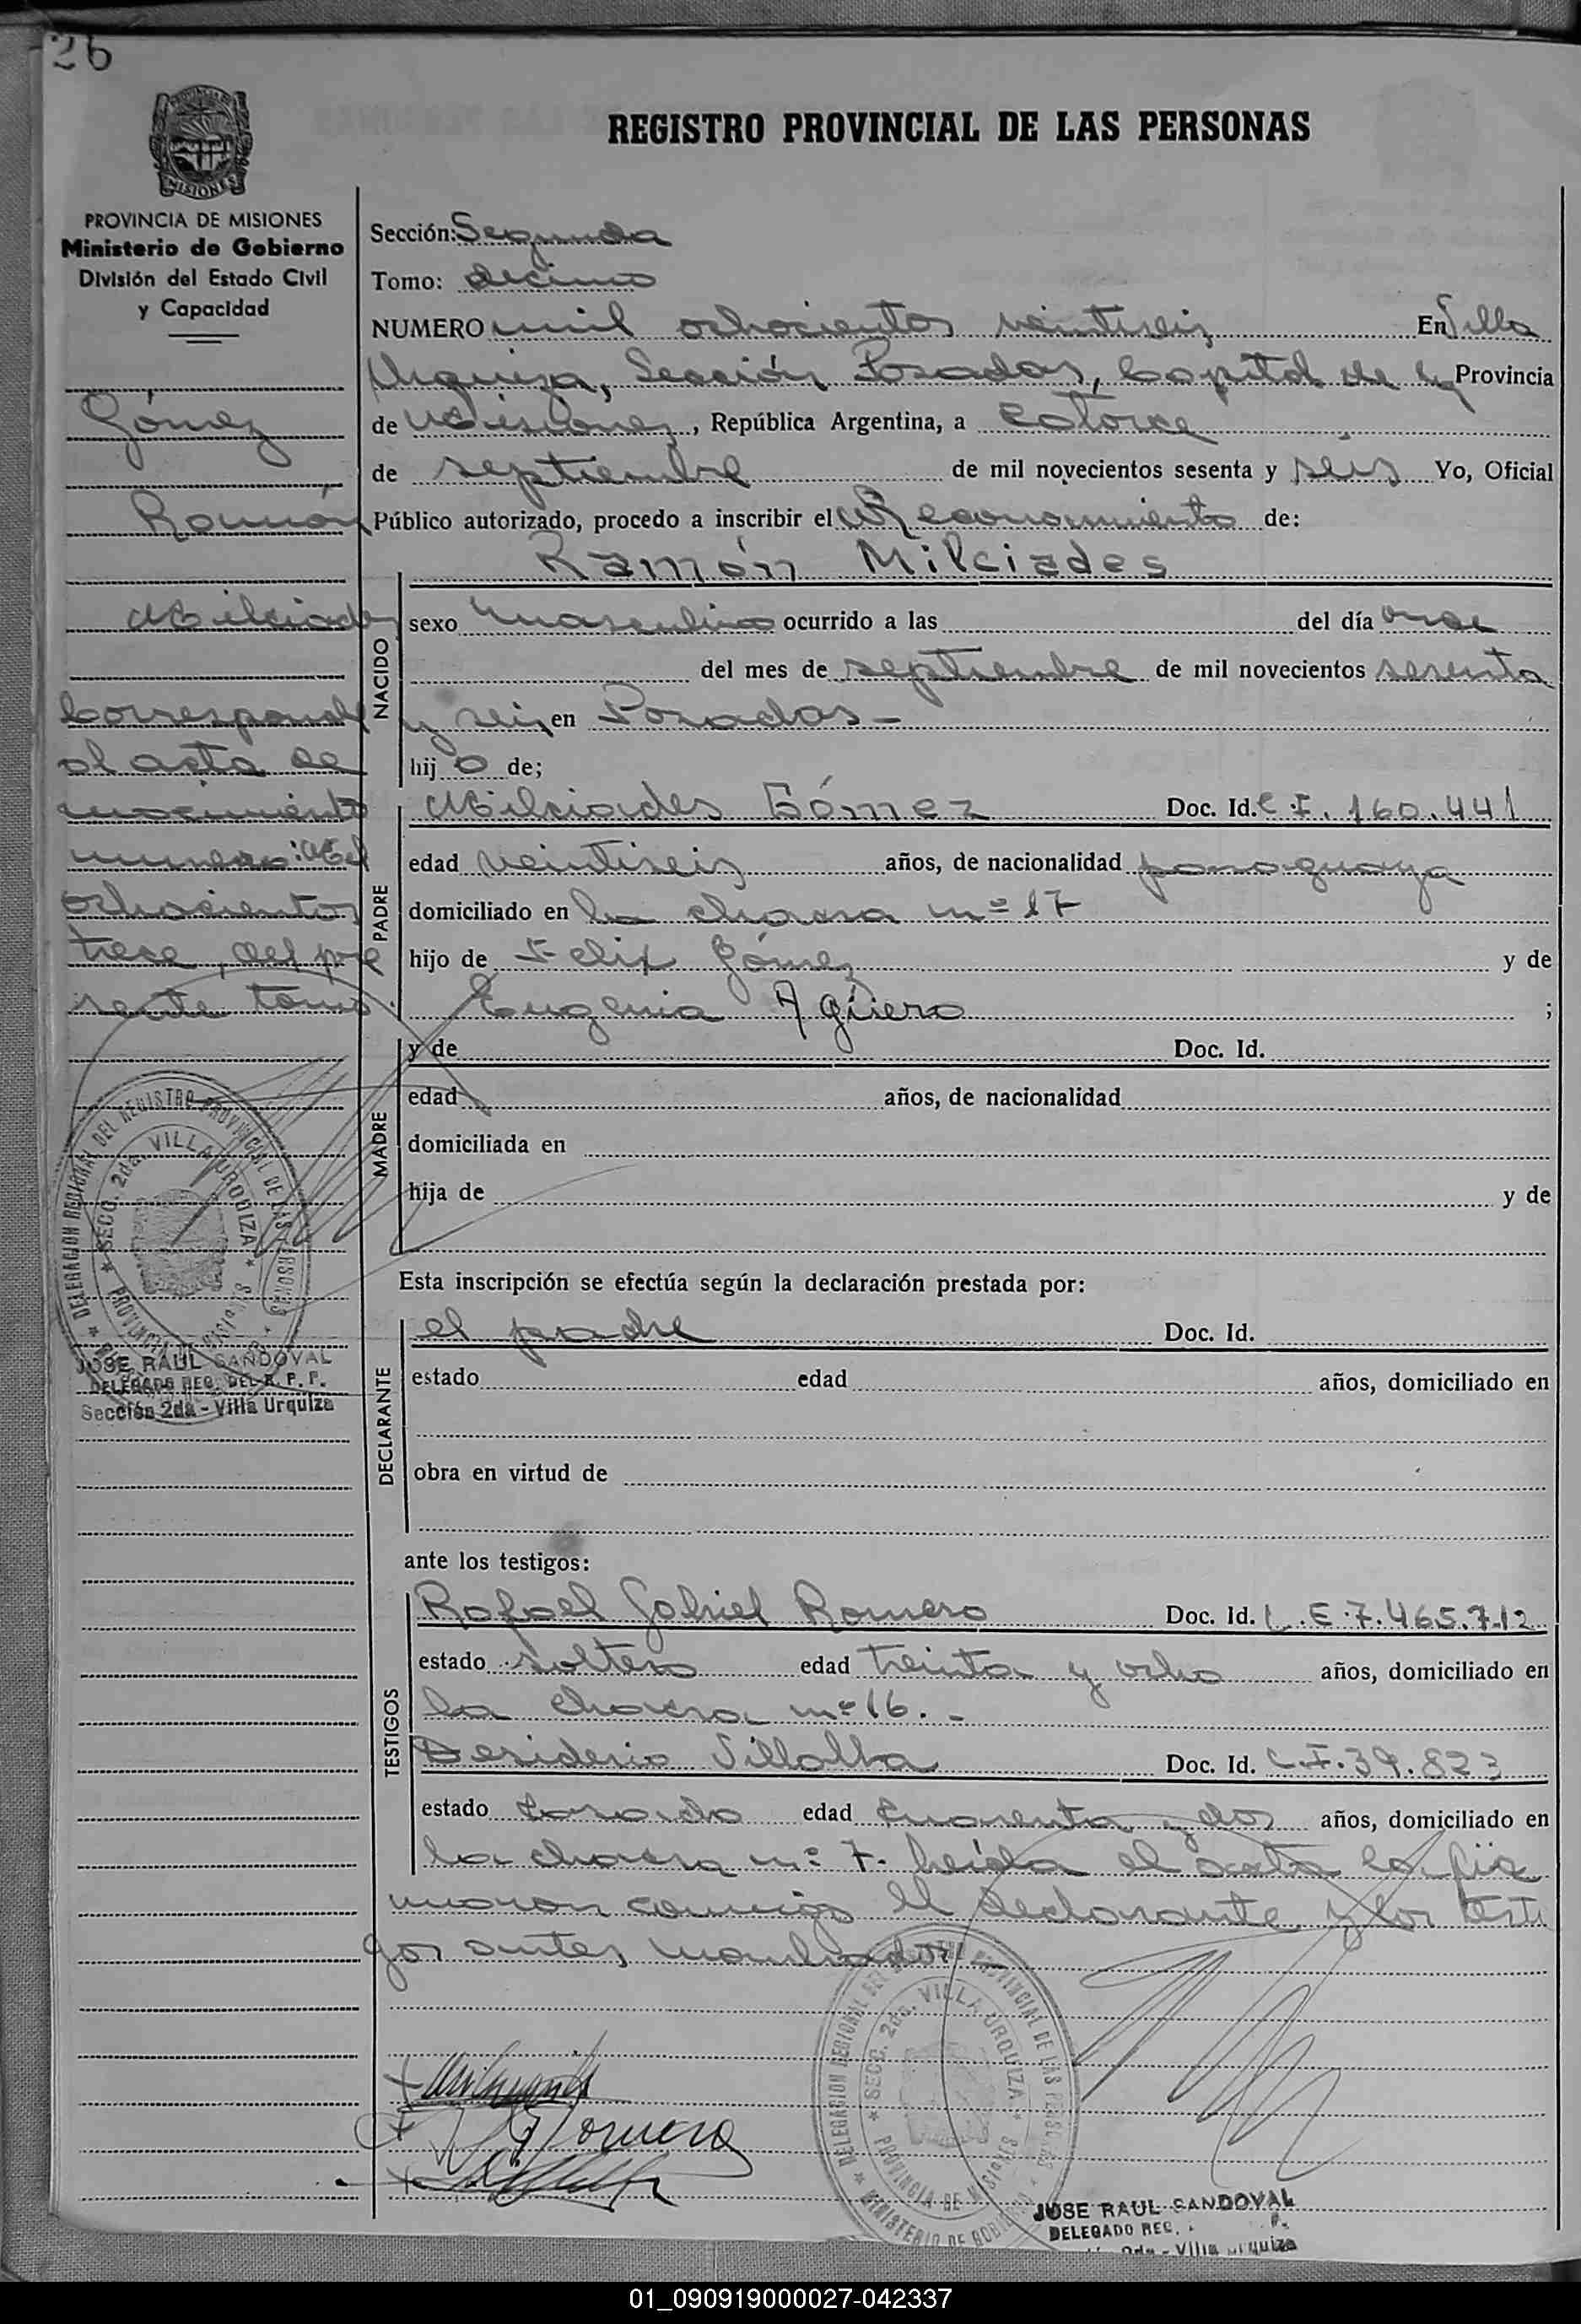 26
REGISTRO PROVINCIAL DE LAS PERSONAS
MISIONES
PROVINCIA DE MISIONES
Ministerio de Gobierno
División del Estado Civil
y Capacidad
Gómez
Ramón
Milciades
Corresponde
al acta de
nacimiento
numero: Mil
ochocientos
trece, del pre
sente tomo.
DELEGACION REGIONAL DEL REGISTRO PROVINCIAL DE LAS PERSONAS
SECC. 2da. VILLA URQUIZA
PROVINCIA DE MISIONES
JOSE RAUL SANDOVAL
DELEGADO REG. DEL R. P. P.
Sección 2da - Villa Urquiza
Sección: Segunda
Tomo: decimo
NUMERO mil ochocientos veintiseis En Villa
Urquiza, Sección Posadas, Capital de la Provincia
de Misiones, República Argentina, a catorce
de septiembre de mil novecientos sesenta y seis Yo, Oficial
Público autorizado, procedo a inscribir el Reconocimiento de:
Ramón Milciades
NACIDO
sexo masculino ocurrido a las del día once
del mes de septiembre de mil novecientos sesenta
y seis en Posadas -
hijo de;
PADRE
Milciades Gómez Doc. Id. C.I. 160.441
edad veintiseis años, de nacionalidad paraguaya
domiciliado en la chacra nº 17
hijo de Felix Gómez y de
Eugenia Agüero ;
MADRE
y de Doc. Id.
edad años, de nacionalidad
domiciliada en
hija de y de
Esta inscripción se efectúa según la declaración prestada por:
DECLARANTE
el padre Doc. Id.
estado edad años, domiciliado en
obra en virtud de
ante los testigos:
TESTIGOS
Rafael Gabriel Romero Doc. Id. L.E. 7.465.712
estado soltero edad treinta y ocho años, domiciliado en
la chacra nº 16. -
Desiderio Villalba Doc. Id. C.I. 39.823
estado casado edad cuarenta y dos años, domiciliado en
la chacra nº 7. Leída el acta la fir
maron conmigo el declarante y los testi
gos antes nombrados
Romero
DELEGACION REGIONAL DEL REGISTRO PROVINCIAL DE LAS PERSONAS
SECC. 2da. VILLA URQUIZA
PROVINCIA DE MISIONES
MINISTERIO DE GOBIERNO
JOSE RAUL SANDOVAL
DELEGADO REG.
2da - Villa Urquiza
01_090919000027-042337